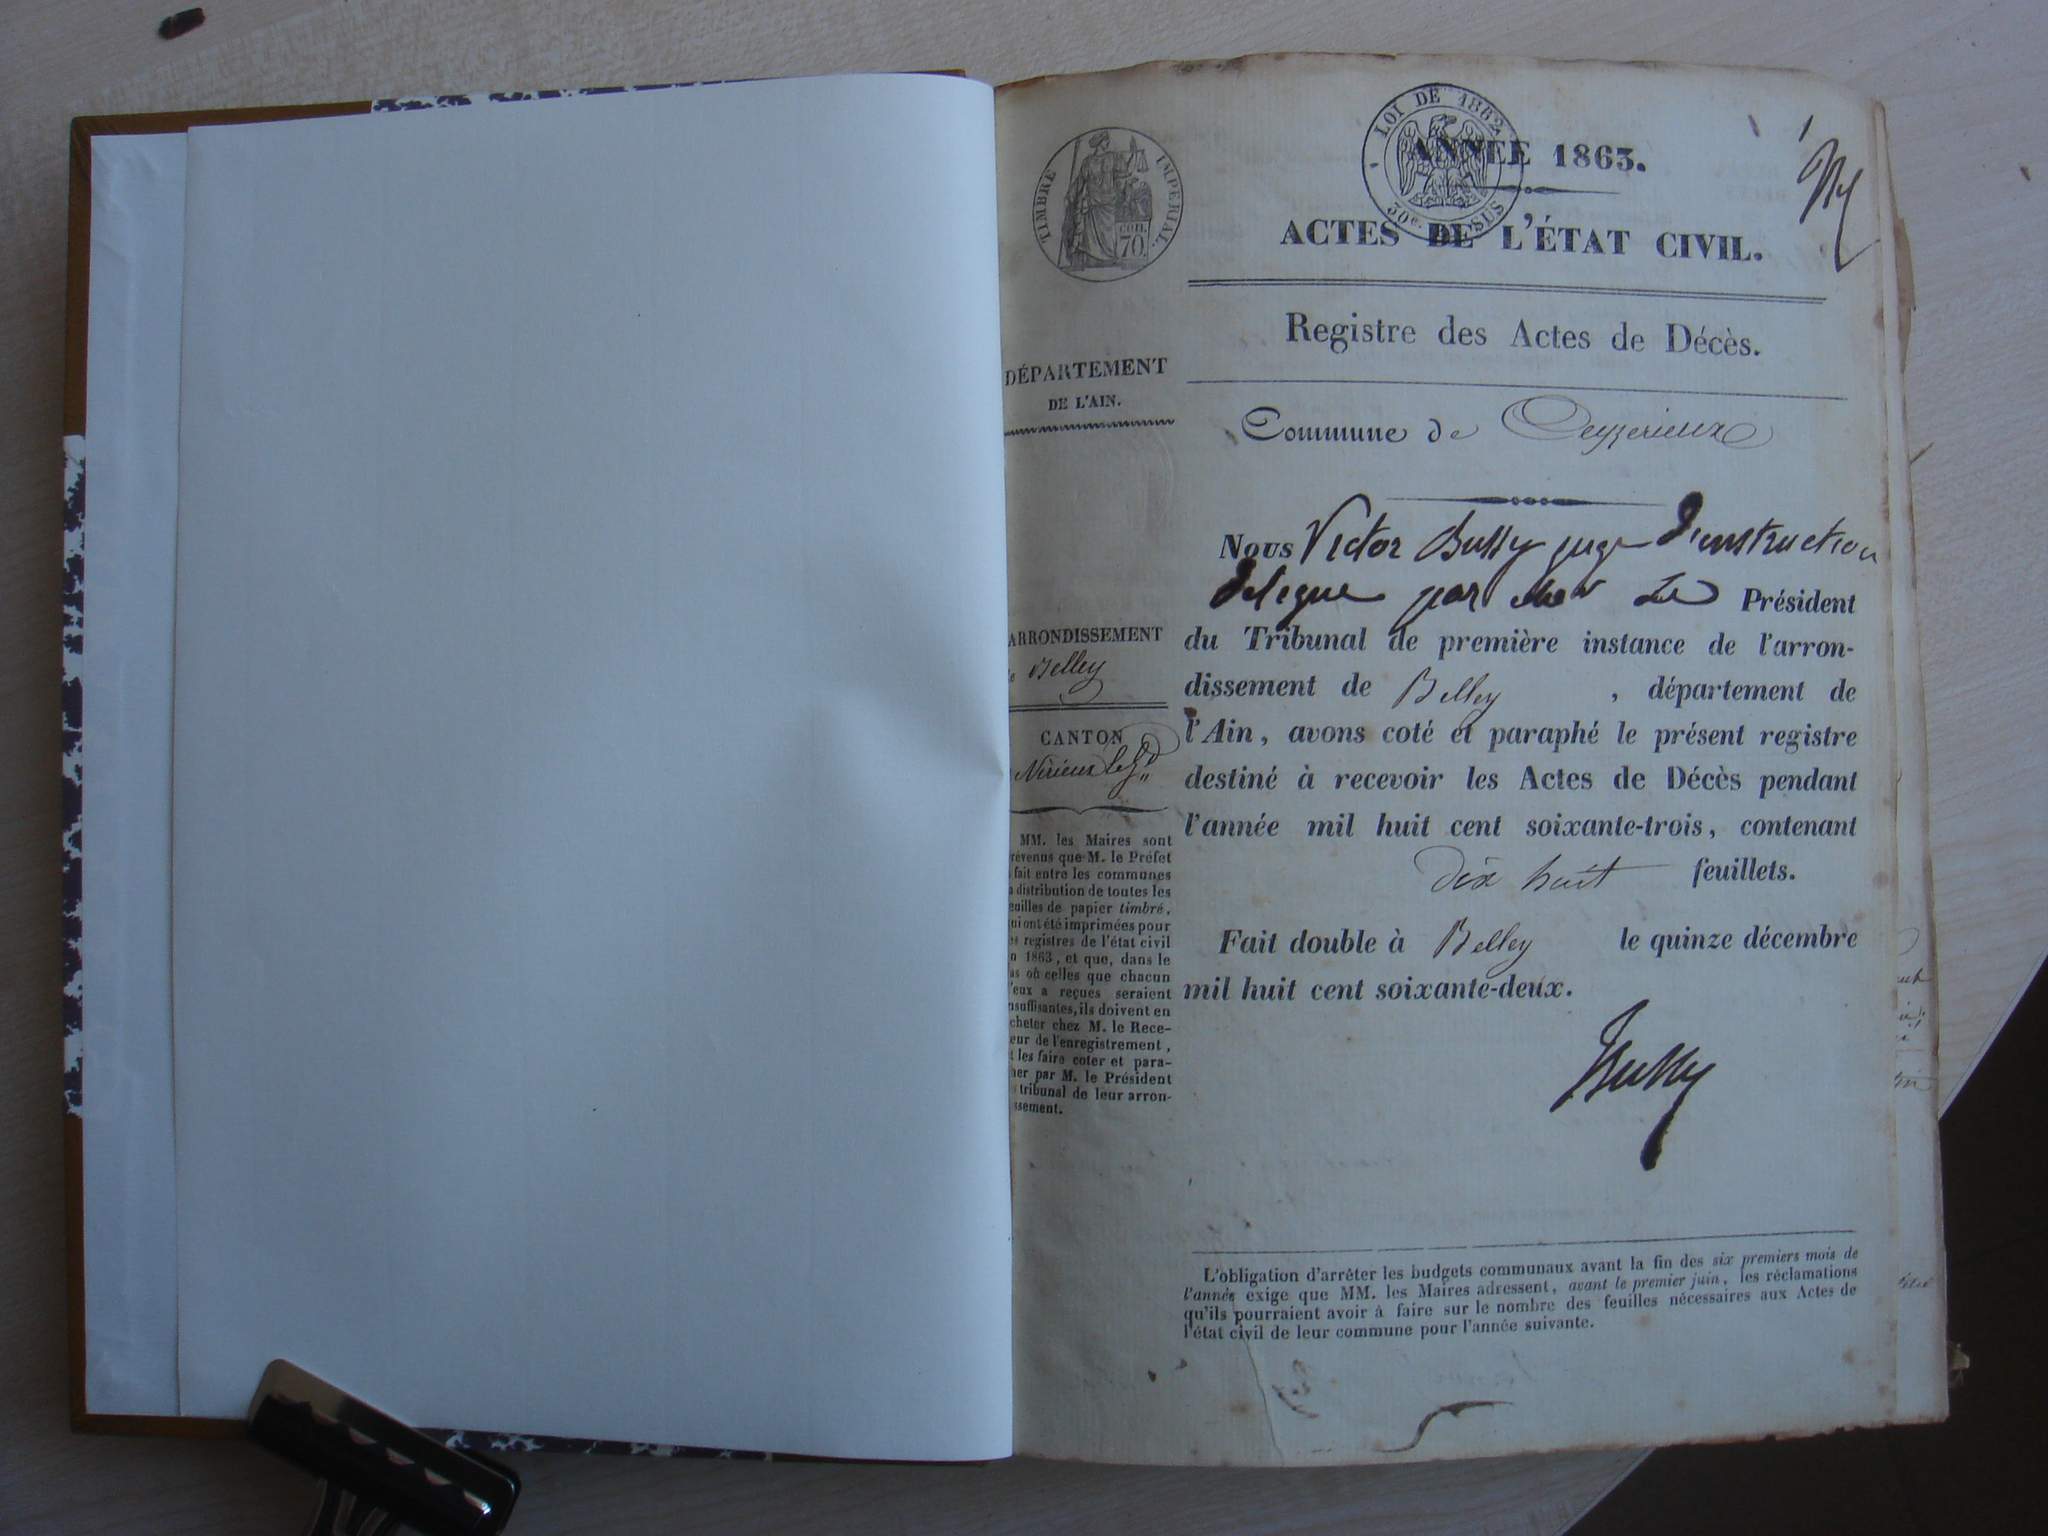 LOI DE 1862
30e. EN SUS
TIMBRE IMPERIAL.
70
ANNÉE 1863.
ACTES DE L'ÉTAT CIVIL.
Registre des Actes de Décès.
DÉPARTEMENT
DE L'AIN.
Commune de Ceyzerieux
Nous Victor Bussy juge d'instruction
délégué par le Président
ARRONDISSEMENT
Belley
du Tribunal de première instance de l'arron-
dissement de Belley, département de
CANTON
Virieux le Gd
l'Ain, avons coté et paraphé le présent registre
destiné à recevoir les Actes de Décès pendant
l'année mil huit cent soixante-trois, contenant
dix huit feuillets.
Fait double à Belley le quinze décembre
mil huit cent soixante-deux.
Bussy
MM. les Maires sont
révenus que M. le Préfet
fait entre les communes
a distribution de toutes les
euilles de papier timbré,
ui ont été imprimées pour
es registres de l'état civil
n 1863, et que, dans le
as où celles que chacun
'eux a reçues seraient
nsuffisantes, ils doivent en
cheter chez M. le Rece-
eur de l'enregistrement,
t les faire coter et para-
her par M. le Président
tribunal de leur arron-
ssement.
L'obligation d'arrêter les budgets communaux avant la fin des six premiers mois de
l'année exige que MM. les Maires adressent, avant le premier juin, les réclamations
qu'ils pourraient avoir à faire sur le nombre des feuilles nécessaires aux Actes de
l'état civil de leur commune pour l'année suivante.